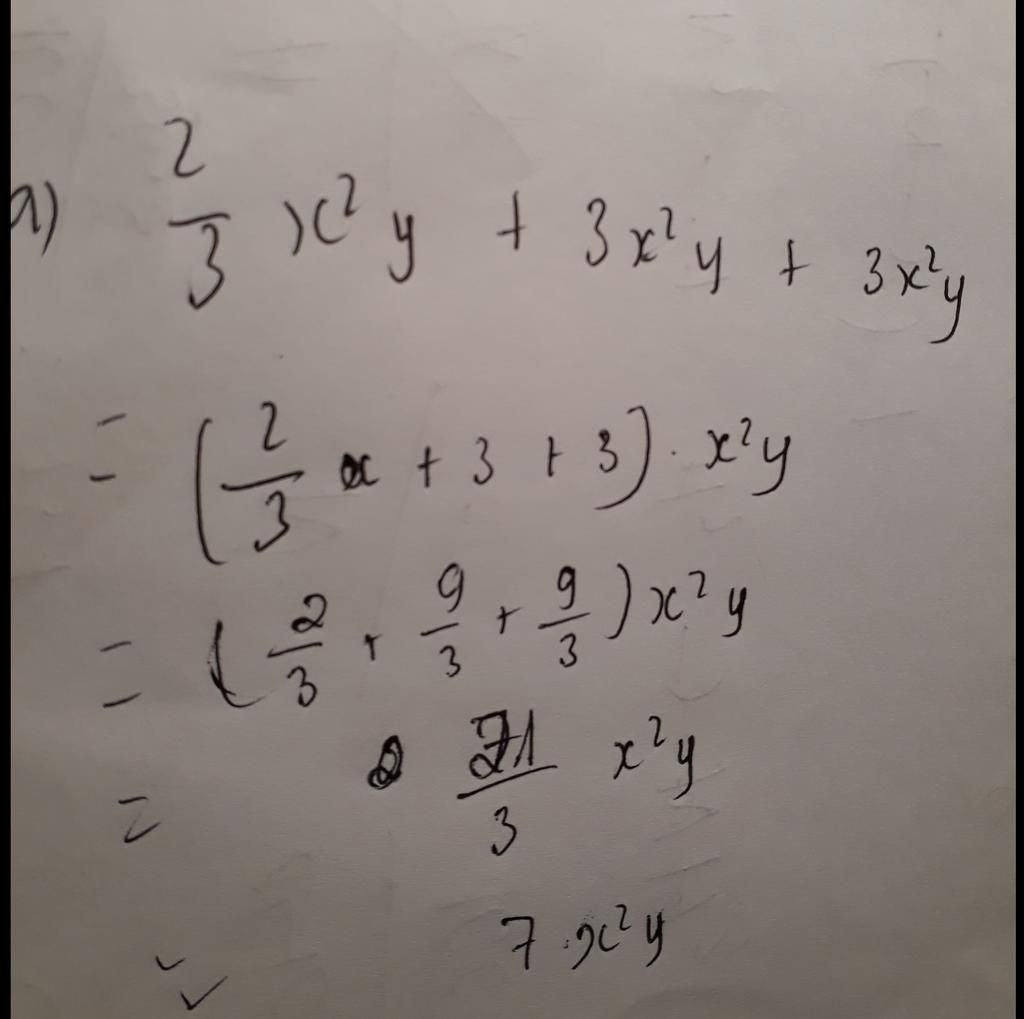 a) 2/3 x²y + 3x²y + 3x²y
= (2/3 + 3 + 3) . x²y
= (2/3 + 9/3 + 9/3) x²y
= 21/3 x²y
= 7 . x²y